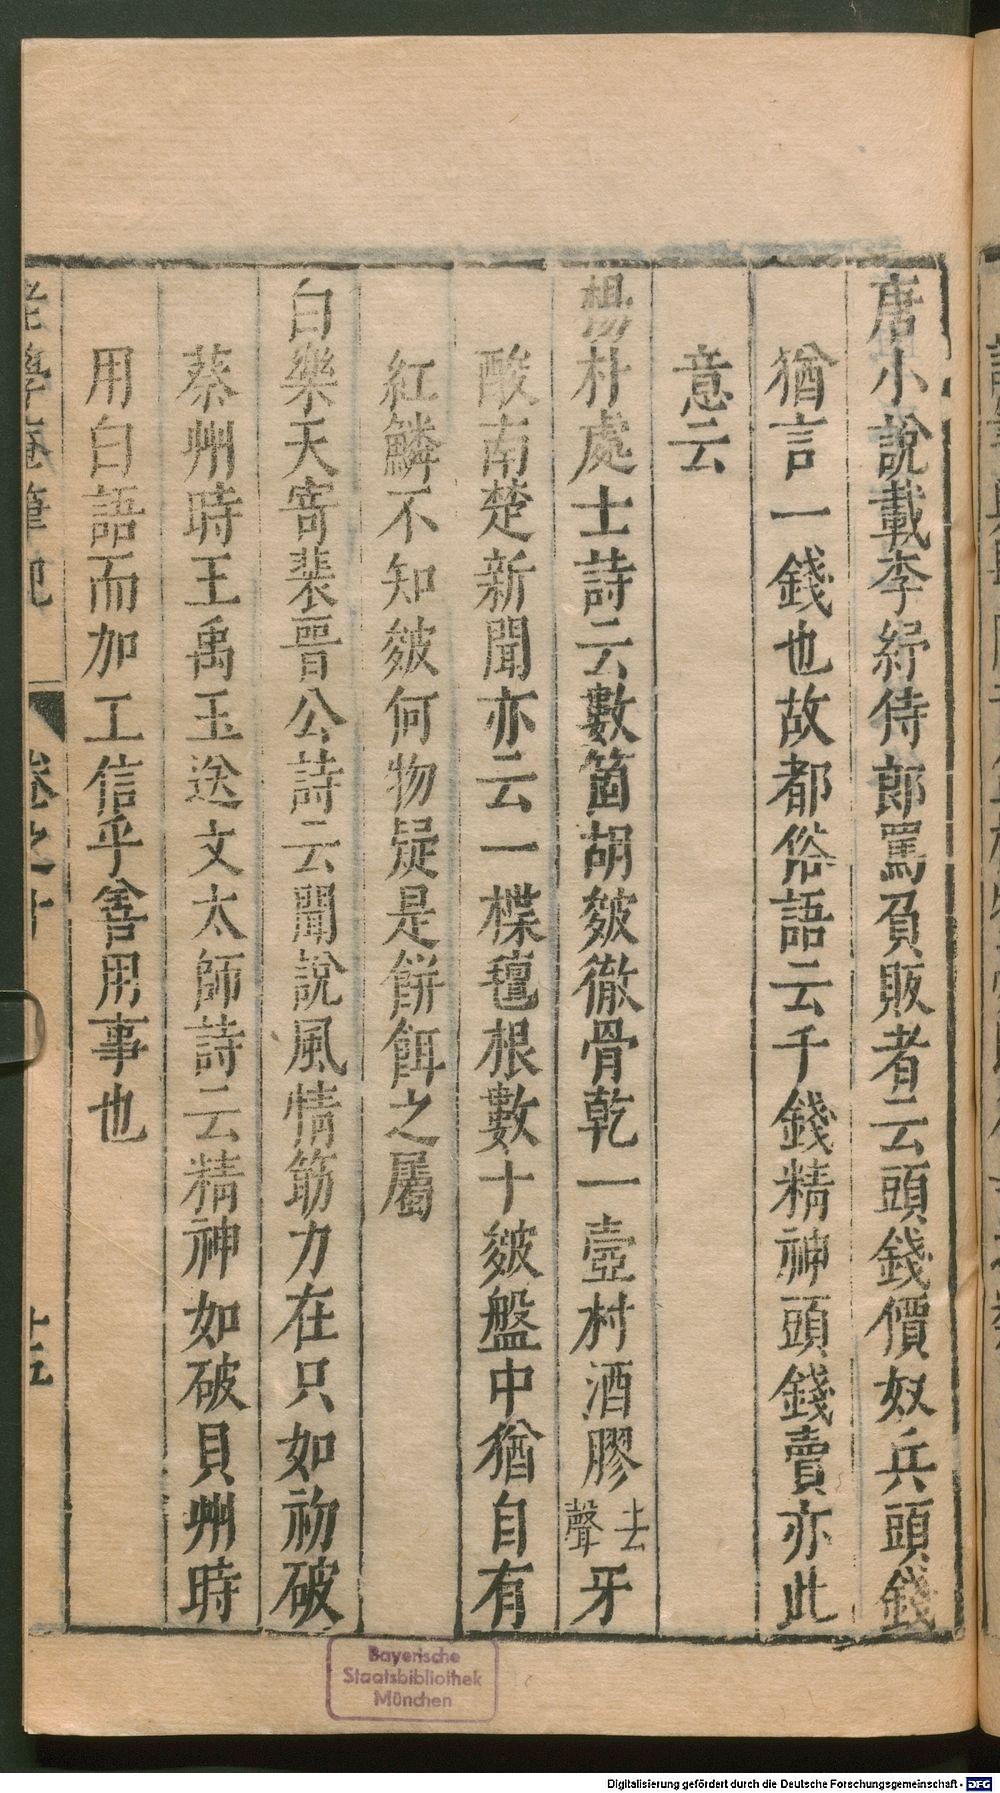 唐小說載李紓侍郎罵負販者云頭錢價奴兵頭錢
猶言一錢也故都俗語云千錢精神頭錢賣亦此
意云
楊朴處士詩云數箇胡皴徹骨乾一壺村酒膠去聲牙
酸南楚新聞亦云一楪氊根數十皴盤中猶自有
紅鱗不知皴何物疑是餅餌之屬
白樂天寄裴晉公詩云聞說風情筋力在只如初破
蔡州時王禹玉送文太師詩云精神如破貝州時
用白語而加工信乎善用事也
老學庵筆記 卷之十 十五
Bayerische
Staatsbibliothek
München
Digitalisierung gefördert durch die Deutsche Forschungsgemeinschaft - DFG